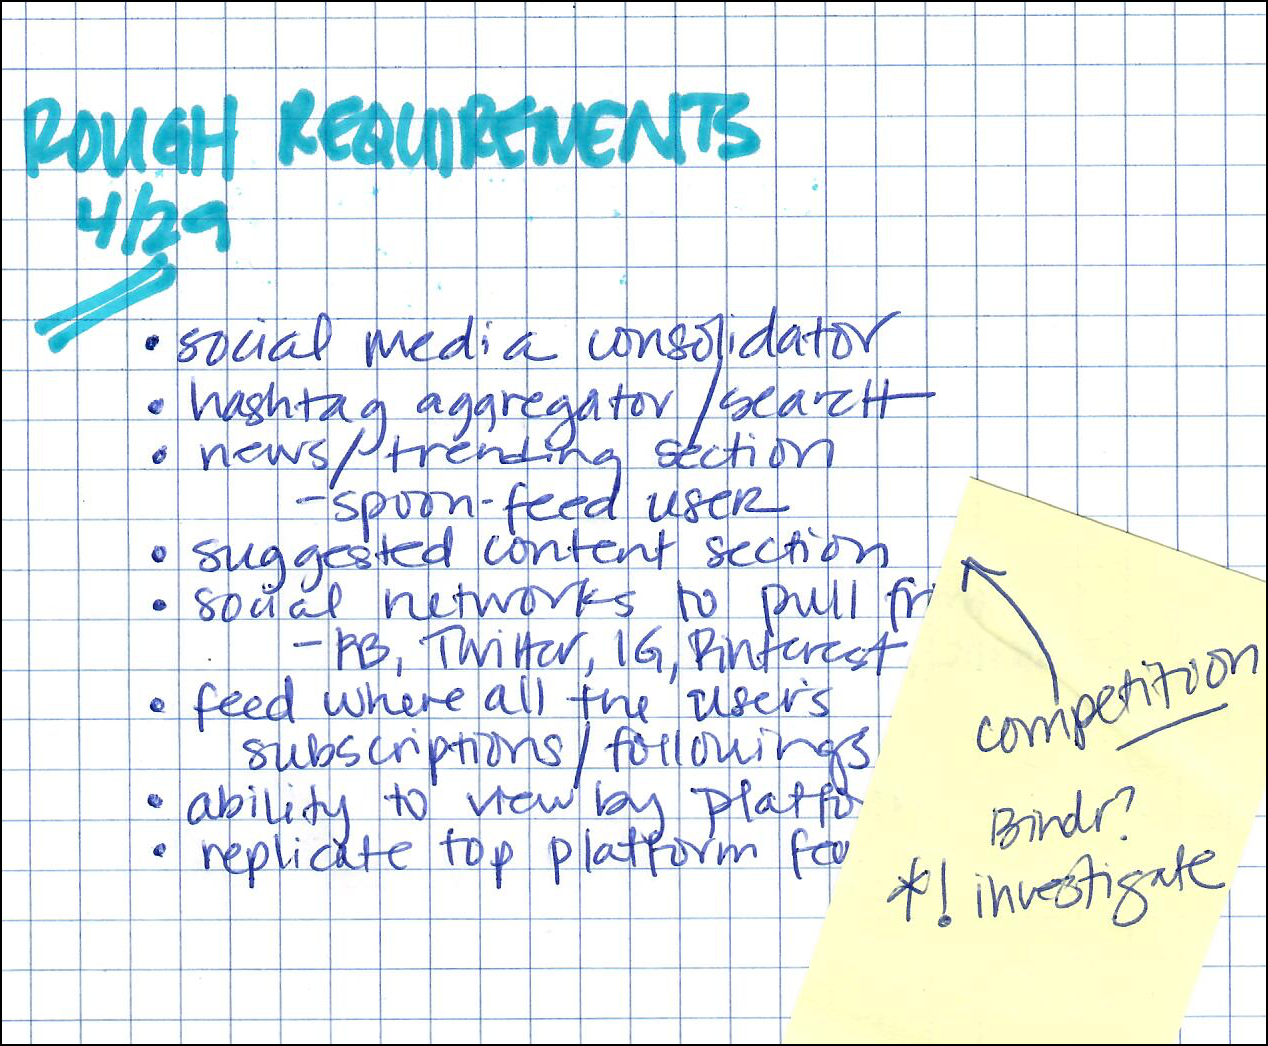 ROUGH REQUIREMENTS
4/29
• social media consolidator
• hashtag aggregator/search
• news/trending section
- spoon-feed user
• suggested content section
• social networks to pull
- FB, Twitter, IG, Pinterest
• feed where all the users
subscriptions/followings
• ability to view by
• replicate top platform
competition
Bindr?
*! investigate